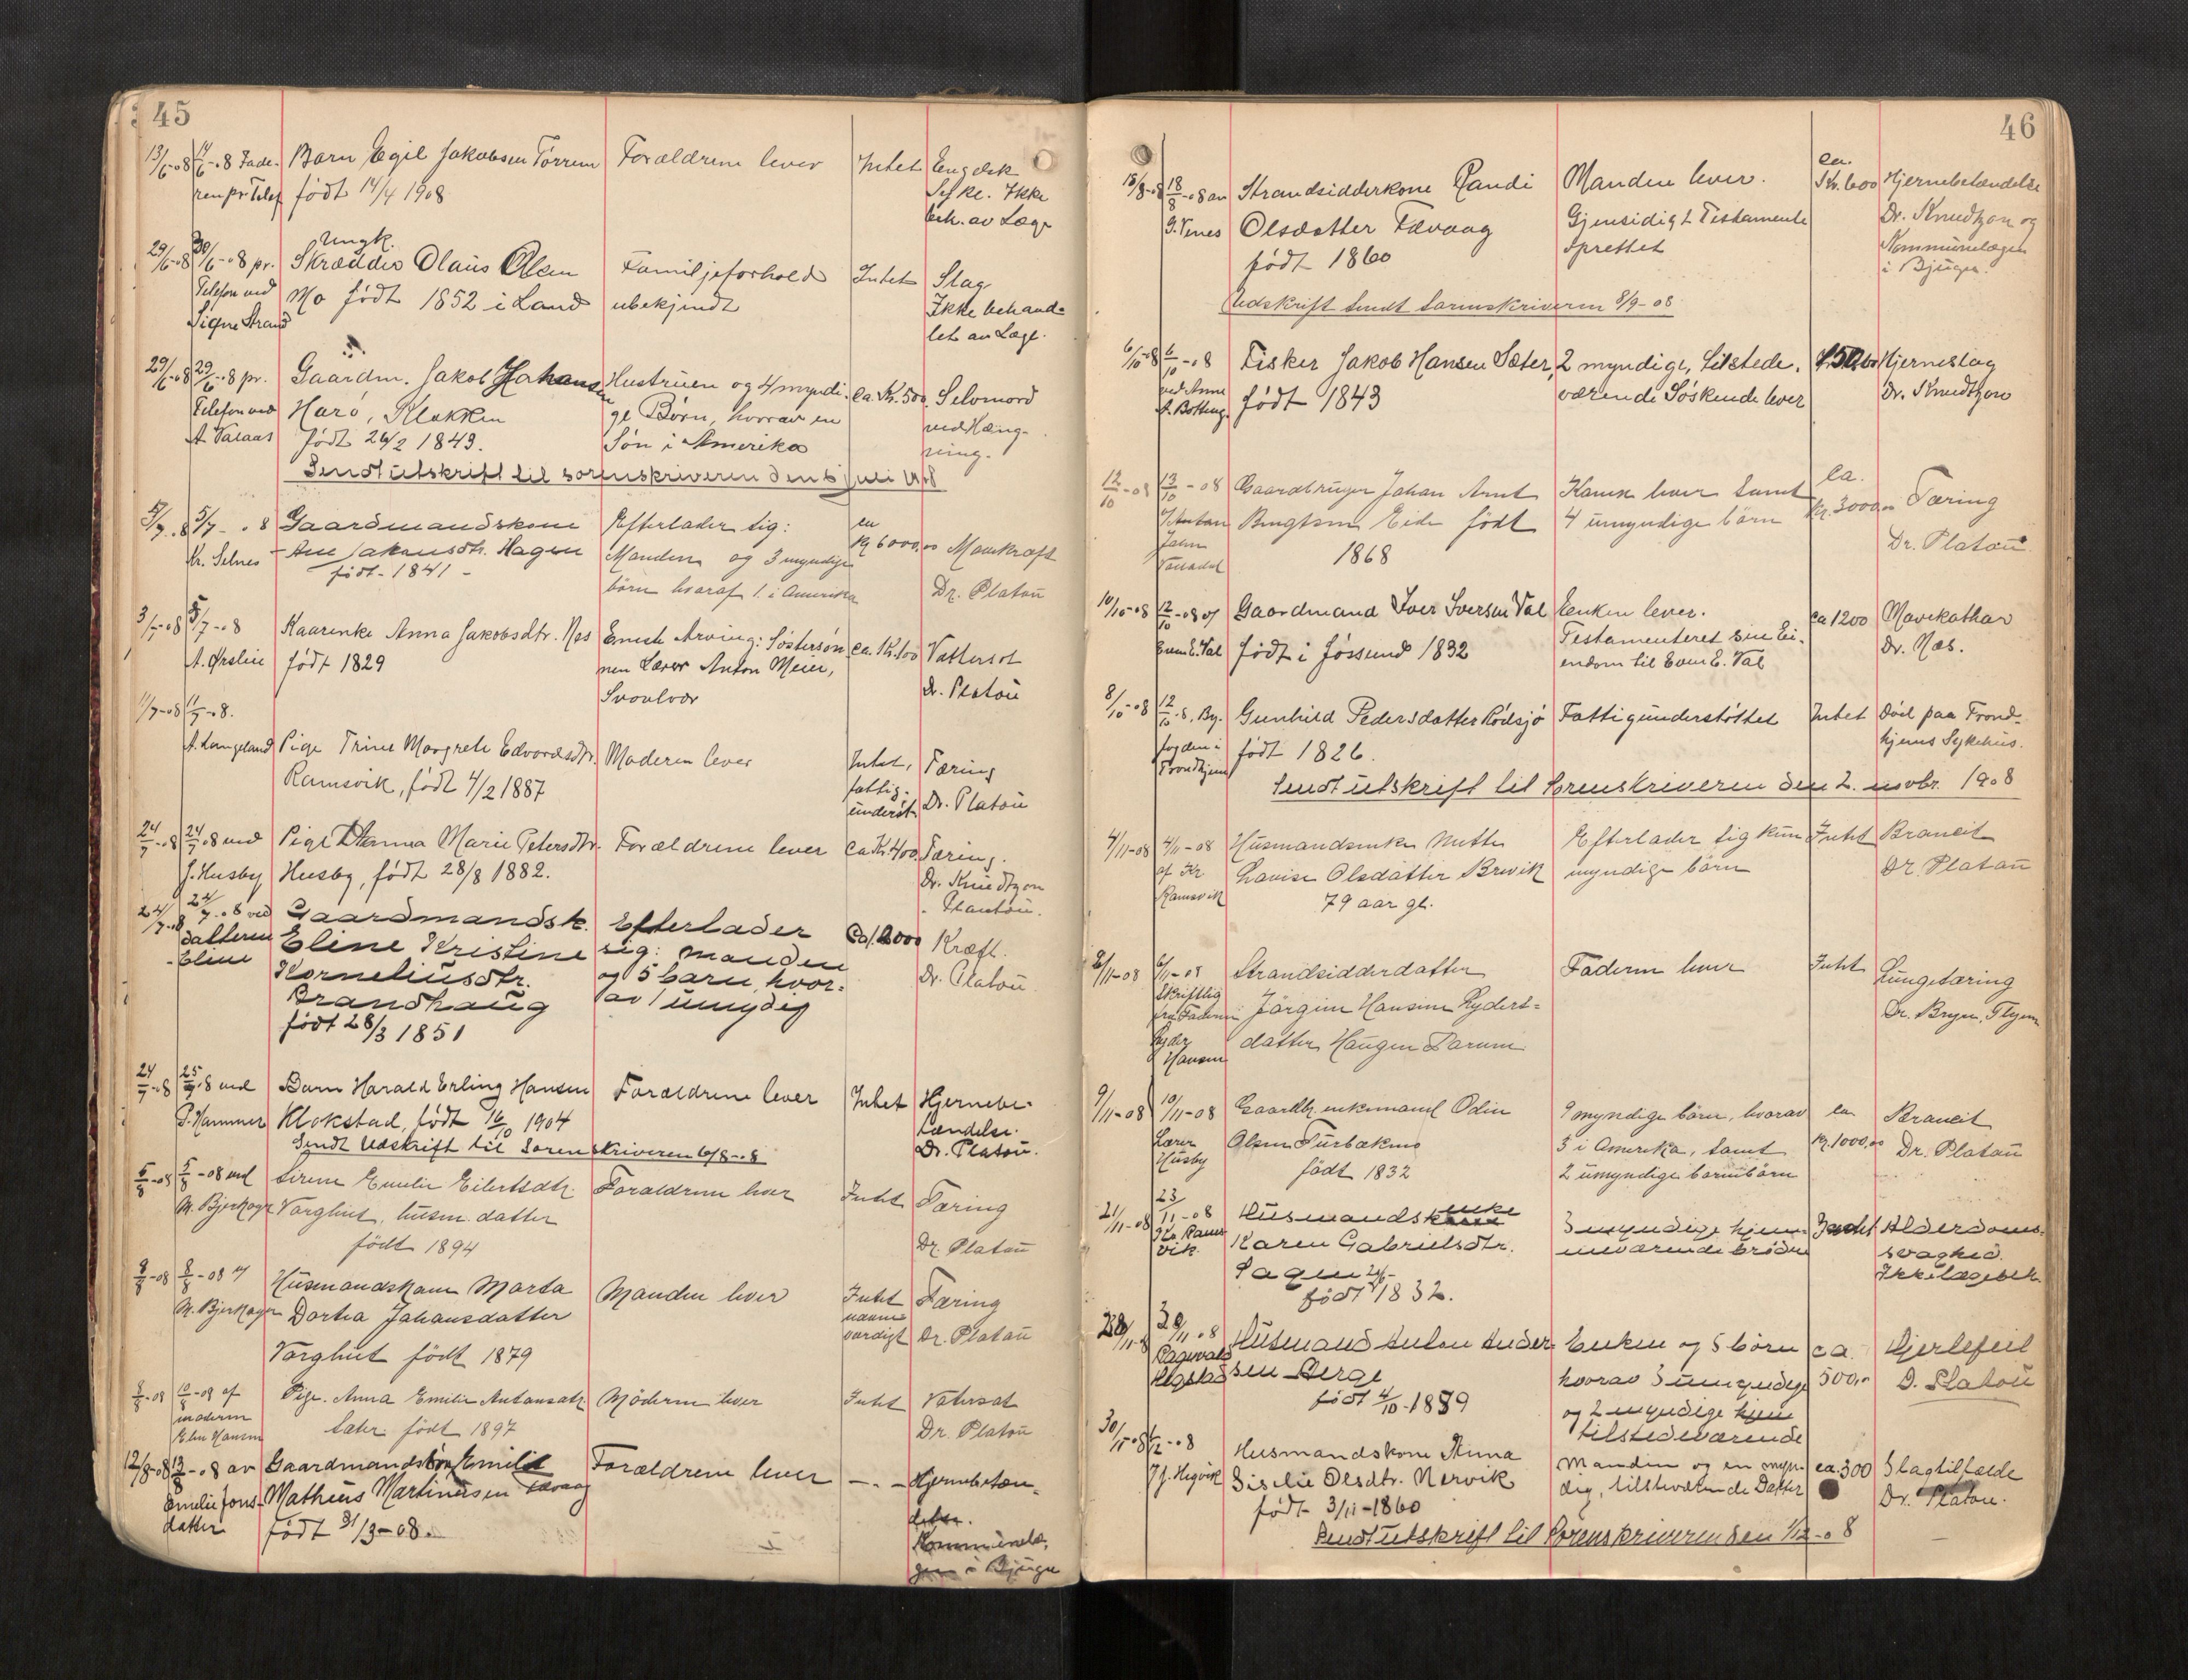 45
13/6-08 14/6-08 Fade- Barn Egil Jakobsen Tørrem Forældrene lever Intet Engelsk
ren pr Telef født 14/4 1908 Syke. Ikke
beh. av Læge
Ungk.
29/6-08 30/6-08 pr. Skrædder Olaus Olsen Familjeforhold Intet Slag
Telefon ved Mo født 1852 i Land ubekjendt Ikke behand-
Signe Strand let av Læge.
29/6-08 29/6-08 pr. Gaardm. Jakob Johansen Hustruen og 4 myndi- Ca. Kr. 500 Selvmord
Telefon ved Harø, Klakken ge Børn, hvorav en ved Hæng-
A. Valaas født 26/2 1843. Søn i Amerika ning.
Sendt utskrift til sorenskriveren den 6 juli 08
5/7-08 5/7-08 Gaardmandskone Efterlader sig: ca
Kr. Selnes Ane Jakobsdtr. Hagen Manden og 3 myndige Kr 6000,00 Mavekræft
født 1841 børn hvoraf 1 i Amerika Dr. Platou
3/7-08 5/7-08 Kaarenke Anna Jakobsdtr. Nes Eneste Arving: Søstersøn ca. Kr. 100 Vattersot
A. Ørsline født 1829 nen Lærer Anton Meier, Dr. Platou
Svovlvær
11/7-08 11/7-08.
A. Langeland Pige Trine Margrete Edvardsdtr. Moderen lever Intet, Tæring
Ramsvik, født 4/2 1887 fattig- Dr. Platou
underst.
24/7-08 24/7-08 ved Pige Hanna Marie Petersdtr. Forældrene lever Ca Kr. 400 Tæring.
J. Husby Husby, født 28/8 1882. Dr. Knudtzon
Plantou.
24/7-08 24/7-08 ved Gaardmandsk. Efterlader Ca 1.2000 Kræft.
datteren Eline Kristine sig: manden Dr. Platou.
Eline Korneliusdtr. og 5 barn, hvor-
Brandhaug av 1 umyndig
født 28/3 1851
24/7-08 25/7-08 ved Barn Harald Erling Hansen Forældrene lever Intet Hjernebe-
P. Hammer Klokstad, født 16/10 1904 tændelse.
Sendt Udskrift til Sorenskriveren 6/8-08 Dr. Platou.
5/8-08 5/8-08 ved Sirene Emelie Eilertsdtr. Forældrene lever Intet Tæring
M. Bjerkager Varghiet, husm. datter
født 1894 Dr. Platou
8/8-08 8/8-08 af Husmandskone Marta Manden lever Intet Tæring
M. Bjerkager Dortea Johansdatter nævne-
værdigt Dr. Platou
Varghiet født 1879
8/8-08 10/8-08 af Pige. Anna Emilie Antonsdtr. Moderen lever Intet Vatersot
moderen
Elen Hansen Sæter født 1897 Dr. Platou
12/8-08 13/8-08 av Gaardmandsbarn Emilie Forældrene lever —.— Hjernebetæn-
Emelie Jons- Matheus Martinussen Fævaag delse.
datter født 31/3-08. Kommunelæ-
gen i Bjugn
46
ca.
18/8-08 18/8-08 av Strandsidderkone Randi Manden lever. Kr. 600 Hjernebetændelse
J. Venes Olsdatter Fævaag Gjensidigt Testamente Dr. Knudtzon og
født 1860 oprettet Kommunelægen
i Bjugn.
Udskrift sendt sorenskriveren 8/9-08
6/10-08 6/10-08 Fisker Jakob Hansen Sæter, 2 myndige, tilstede- Hjerneslag
ved Anne født 1843 værende Søskende lever Dr. Knudtzon
A. Botteng.
ca.
12/10-08 13/10-08 Gaardbruger Johan Arnt Konen lever samt Kr. 3000,- Tæring
Bengtsen Eide født 4 umyndige børn
1868 Dr. Platou
10/10-08 12/10-08 af Gaardmand Iver Iversen Val Enken lever. ca 1200 Mavekathar
Even E. Val født i Jøssund 1832 Testamenteret sin Ei- Dr. Næs.
endom til Even E. Val
8/10-08 12/10-8, By- Gunhild Pedersdatter Rødsjø Fattigunderstøttet Intet Død paa Trond-
fogden i født 1826. hjems Sykehus.
Trondhjem
Sendt utskrift til Sorenskriveren den 2. novbr. 1908
4/11-08 4/11-08 Husmandsenke Mette Efterlader sig kun Intet Broncit
af Kr Lovise Olsdatter Brevik myndige børn Dr. Platou
Ramsvik 79 aar gl.
2/11-08 6/11-08 Strandsidderdatter Faderen lever Intet Lungetæring
Skriftlig
fra Faderen Jørgine Hansine Ryders- Dr. Bryn, Flyen
Ryder datter Haugen Tarum
Hansen
9/11-08 10/11-08 Gaardbr. enkemand Odin 9 myndige børn, hvorav ca. Broncit
Lærer Olsen Turbakmo 3 i Amerika, samt Kr. 1000,00 Dr. Platou
Husby født 1832 2 umyndige barnebørn
21/11-08 23/11-08 Husmandsenke 3 myndige hjem- Intet Alderdoms-
Kr. Rams Karen Gabrielsdtr. meværende brødre svaghed.
vik Sagen Ikke lægebeh.
født 1832.
28/11-8 30/11-08 Husmand Anton Ander- Enken og 5 børn ca. Hjertefeil
Ragnvald sen Berge hvorav 3 umyndige 500,- D. Platou
født 4/10-1889 og 2 myndige hjem
tilstedeværende
30/11-08 1/12-08 Husmandskone Anna Manden og en myn- ca. 300 Slagtilfælde
J. Hegvik Sisilie Olsdtr. Nervik dig, tilstedeværende Datter Dr. Platou.
født 3/11-1860
Sendt utskrift til Sorenskriveren den 1/12-08